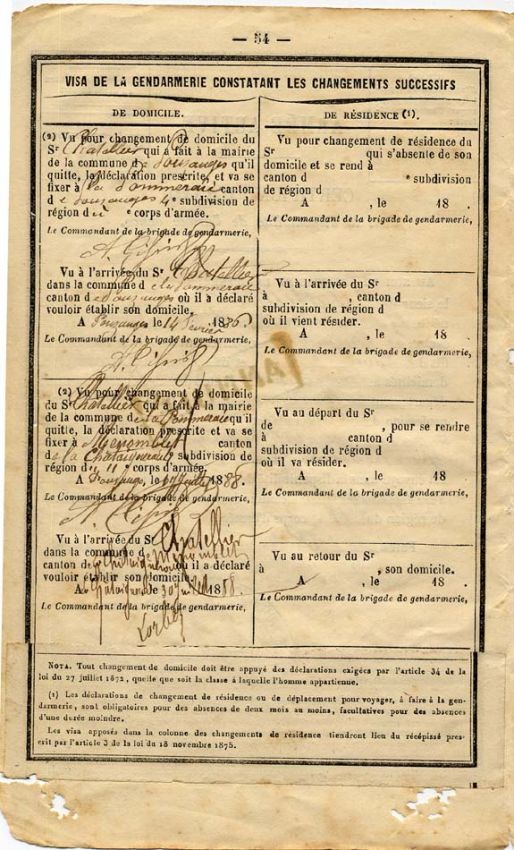 — 54 —
VISA DE LA GENDARMERIE CONSTATANT LES CHANGEMENTS SUCCESSIFS
DE DOMICILE.
(2) Vu pour changement de domicile du
Sr Chatellier qui a fait à la mairie
de la commune de Pouzauges qu'il
quitte, la déclaration prescrite, et va se
fixer à la Pommeraie canton
de Pouzauges 4e subdivision de
région d e corps d'armée.
Le Commandant de la brigade de gendarmerie,
Vu à l'arrivée du Sr Chatellier
dans la commune de la Pommeraie
canton de Pouzauges où il a déclaré
vouloir établir son domicile.
A Pouzauges le 14 février 1886
Le Commandant de la brigade de gendarmerie,
(2) Vu pour changement de domicile
du Sr Chatellier qui a fait à la mairie
de la commune de la Pommeraie qu'il
quitte, la déclaration prescrite et va se
fixer à canton
de la Chataigneraie subdivision de
région d " " e corps d'armée.
A Pouzauges, le 1888.
Le Commandant de la brigade de gendarmerie,
Vu à l'arrivée du Sr Chatellier
dans la commune de
canton de où il a déclaré
vouloir établir son domicile.
A Chataigneraie 30 Juillet 1888.
Le Commandant de la brigade de gendarmerie,
DE RÉSIDENCE (1).
Vu pour changement de résidence du
Sr qui s'absente de son
domicile et se rend à
canton d e subdivision
de région d
A , le 18 .
Le Commandant de la brigade de gendarmerie,
Vu à l'arrivée du Sr
à , canton d
subdivision de région d
où il vient résider.
A , le 18 .
Le Commandant de la brigade de gendarmerie,
Vu au départ du Sr
de , pour se rendre
à canton d
subdivision de région d
où il va résider.
A , le 18 .
Le Commandant de la brigade de gendarmerie,
Vu au retour du Sr
à , son domicile.
A , le 18 .
Le Commandant de la brigade de gendarmerie,
NOTA. Tout changement de domicile doit être appuyé des déclarations exigées par l'article 34 de la
loi du 27 juillet 1872, quelle que soit la classe à laquelle l'homme appartienne.
(1) Les déclarations de changement de résidence ou de déplacement pour voyager, à faire à la gen-
darmerie, sont obligatoires pour des absences de deux mois au moins, facultatives pour des absences
d'une durée moindre.
Les visa apposés dans la colonne des changements de résidence tiendront lieu du récépissé pres-
crit par l'article 3 de la loi du 18 novembre 1875.